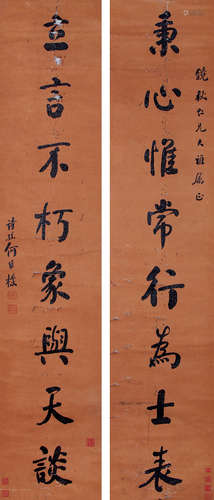 鏡秋仁兄大雅屬正
秉心惟常行為士表
立言不朽象與天談
詩孫何維樸